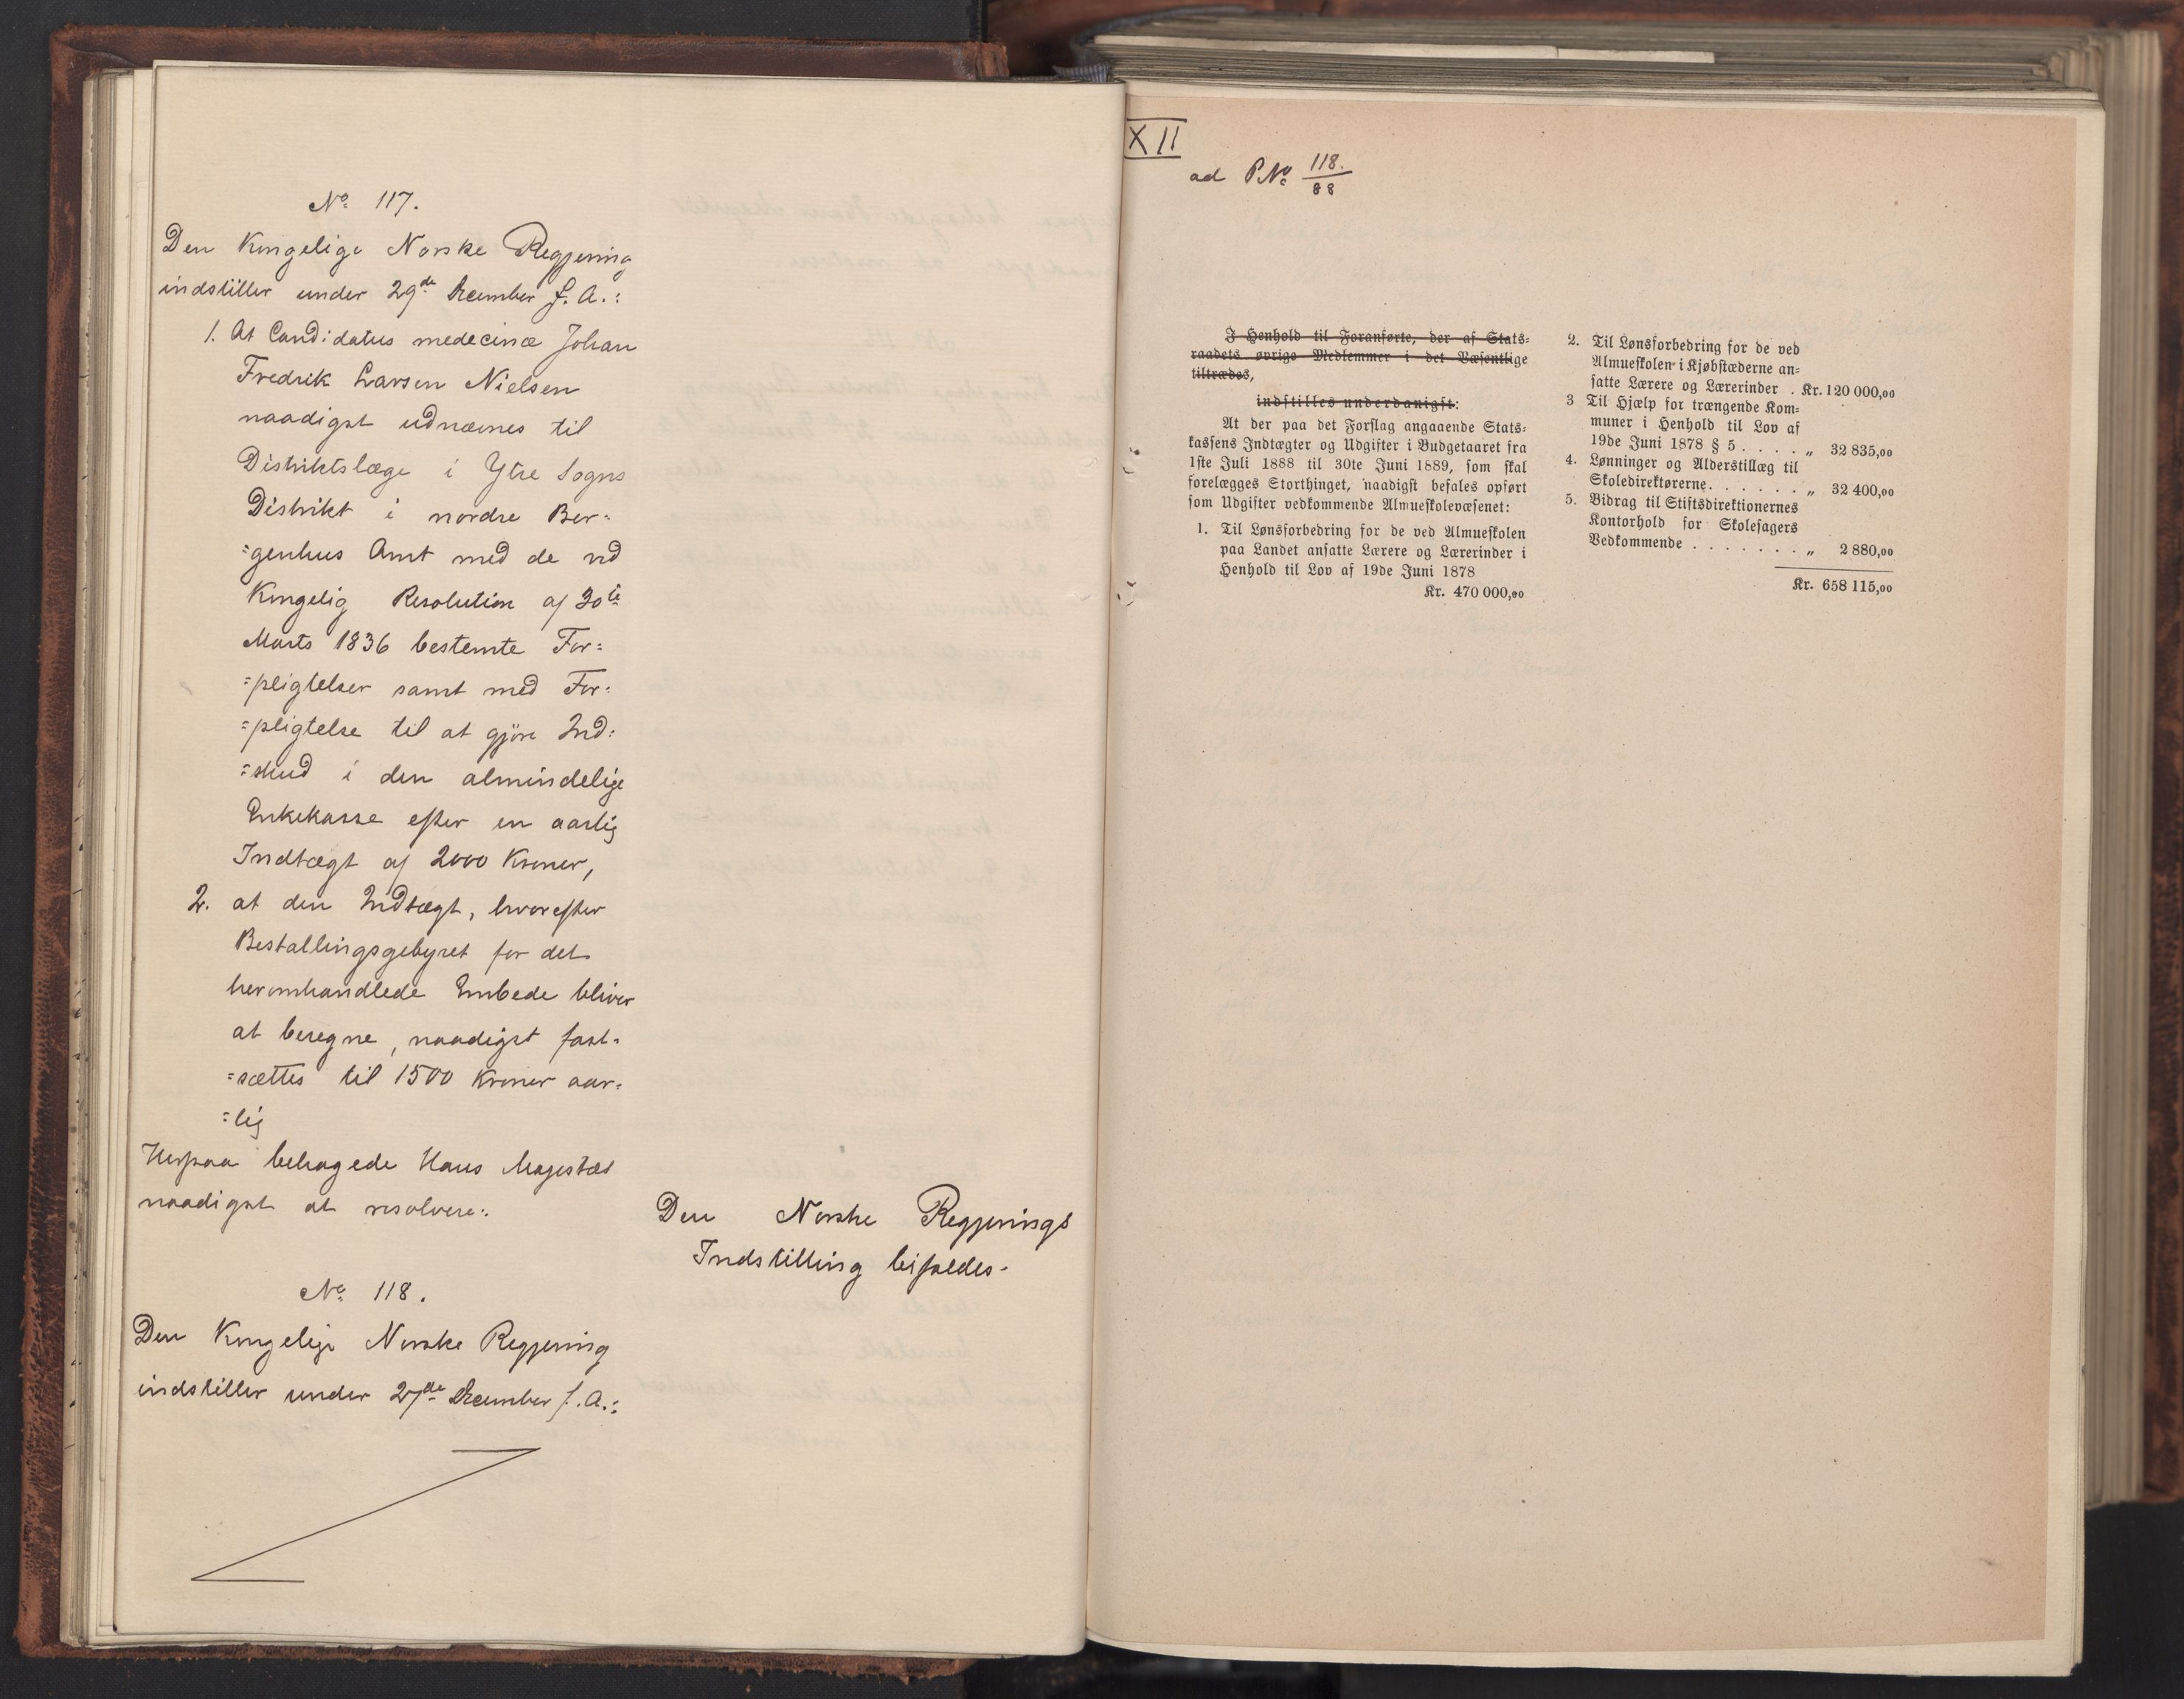 No 117.
Den Kongelige Norske Regjering
indstiller under 29de December f. A.:
1. At Candidatus medecinæ Johan
Fredrik Larsen Nielsen
naadigst udnævnes til
Distriktslæge i Ytre Sogns
Distrikt i nordre Ber=
=genhus Amt med de ved
Kongelig Resolution af 30te
Marts 1836 bestemte For=
=pligtelser samt med For=
=pligtelse til at gjöre Ind=
=skud i den almindelige
Enkekasse efter en aarlig
Indtægt af 2000 Kroner,
2. at den Indtægt, hvorefter
Bestallingsgebyret for det
heromhandlede Embede bliver
at beregne, naadigst fast=
=sættes til 1500 Kroner aar=
=lig
Herpaa behagede Hans Majestæt
naadigst at resolvere:
Den Norske Regjerings
Indstilling bifaldes.
No 118.
Den Kongelige Norske Regjering
indstiller under 27de December f. A.:
XII
ad P.No 118./88
I Henhold til Foranførte, der af Stats=
raadets øvrige Medlemmer i det Væsentlige
tiltrædes,
indstilles underdanigst:
At der paa det Forslag angaaende Stats=
kassens Indtægter og Udgifter i Budgetaaret fra
1ste Juli 1888 til 30te Juni 1889, som skal
forelægges Storthinget, naadigst befales opført
som Udgifter vedkommende Almueskolevæsenet:
1. Til Lønsforbedring for de ved Almueskolen
paa Landet ansatte Lærere og Lærerinder i
Henhold til Lov af 19de Juni 1878
Kr. 470 000,00
2. Til Lønsforbedring for de ved
Almueskolen i Kjøbstæderne an=
satte Lærere og Lærerinder . Kr. 120 000,00
3 Til Hjælp for trængende Kom=
muner i Henhold til Lov af
19de Juni 1878 § 5 . . . . „ 32 835,00
4. Lønninger og Alderstillæg til
Skoledirektørerne. . . . . . . „ 32 400,00
5. Bidrag til Stiftsdirektionernes
Kontorhold for Skolesagers
Vedkommende . . . . . . . „ 2 880,00
Kr. 658 115,00